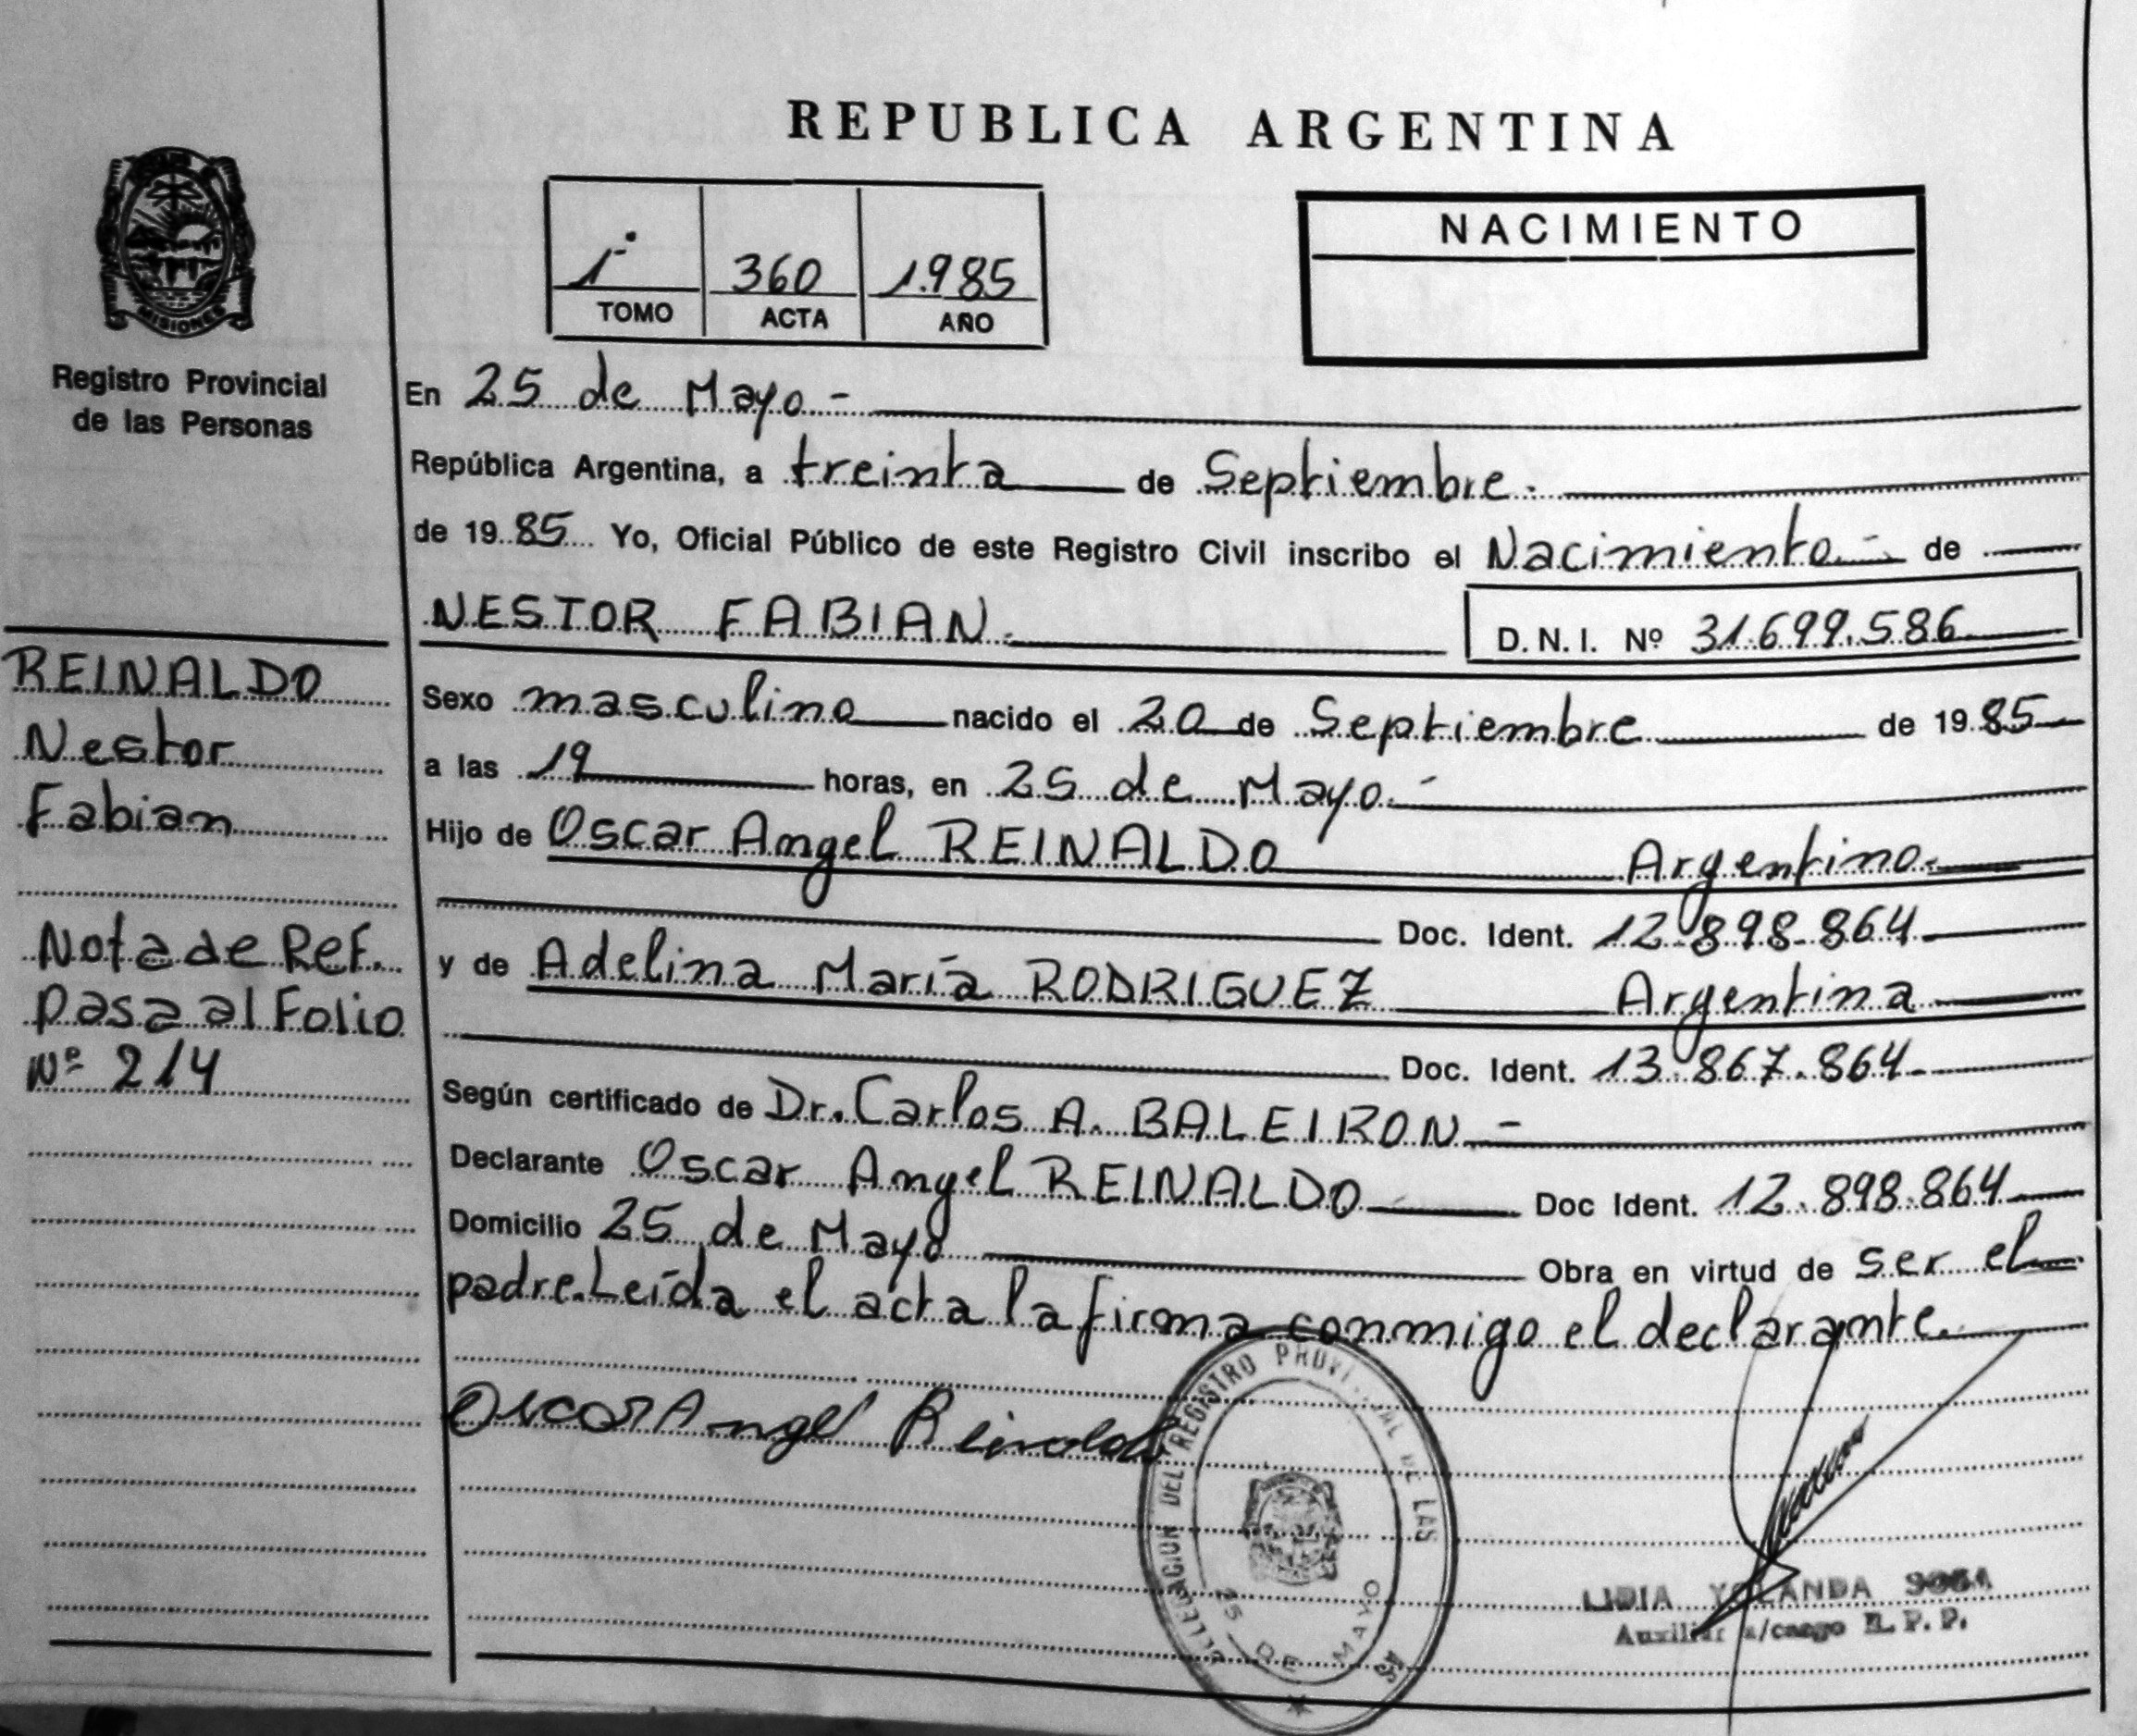 REPUBLICA ARGENTINA
MISIONES
Registro Provincial
de las Personas
1º 360 1.985
TOMO ACTA AÑO
NACIMIENTO
En 25 de Mayo.-
República Argentina, a treinta de Septiembre.
de 1985 Yo, Oficial Público de este Registro Civil inscribo el Nacimiento.- de
NESTOR FABIAN.
D. N. I. Nº 31.699.586
REINALDO
Nestor
Fabian
Nota de Ref.
pasa al Folio
Nº 214
Sexo masculino nacido el 20 de Septiembre de 1985
a las 19 horas, en 25 de Mayo.-
Hijo de Oscar Angel REINALDO Argentino.
Doc. Ident. 12.898.864
y de Adelina María RODRIGUEZ Argentina
Doc. Ident. 13.867.864
Según certificado de Dr. Carlos A. BALEIRON.-
Declarante Oscar Angel REINALDO Doc Ident. 12.898.864
Domicilio 25 de Mayo Obra en virtud de ser el
padre. Leída el acta la firma conmigo el declarante.
Oscar Angel Reinaldo
DELEGACION DEL REGISTRO DE LAS
25 DE MAYO
LIDIA YOLANDA
Auxiliar a/cargo R. P. P.